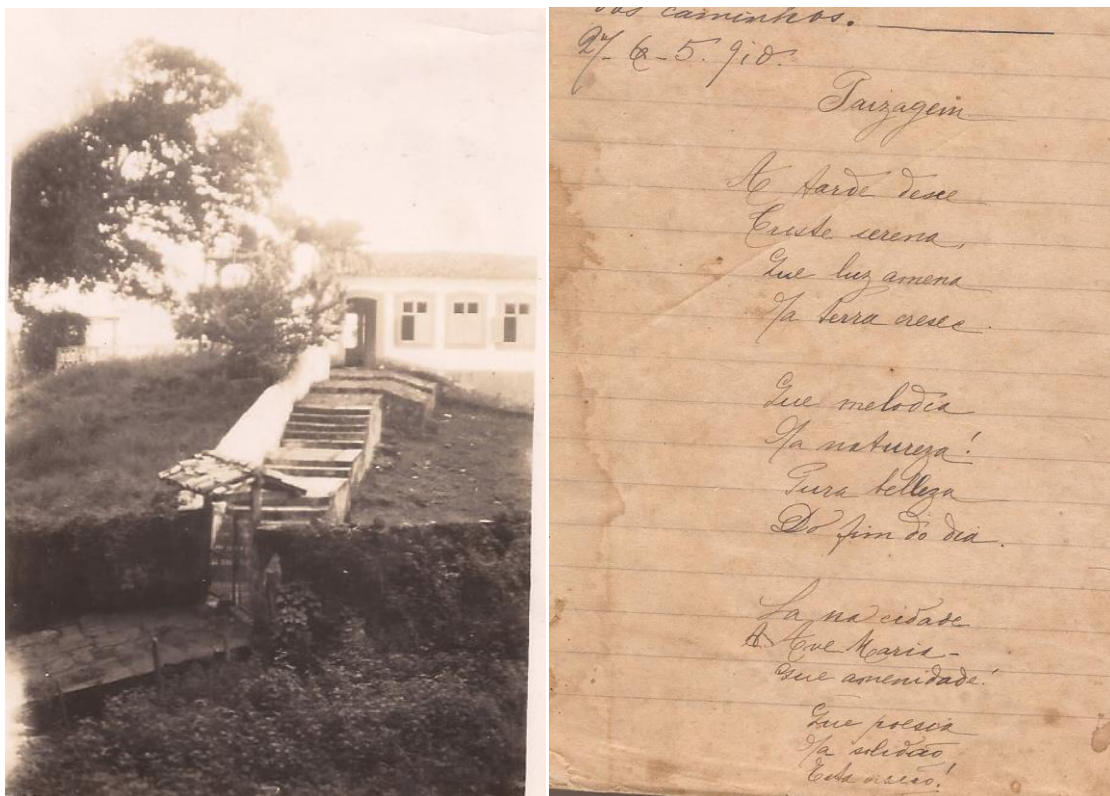 dos caminhos.
27-6-5-910.
Paizagem
A tarde desce
Triste serena,
Que luz amena
Na terra cresce.
Que melodia
Na natureza!
Pura belleza
Do fim do dia.
La na cidade
A Ave Maria-
Que amenidade!
Que poesia
Na solidão